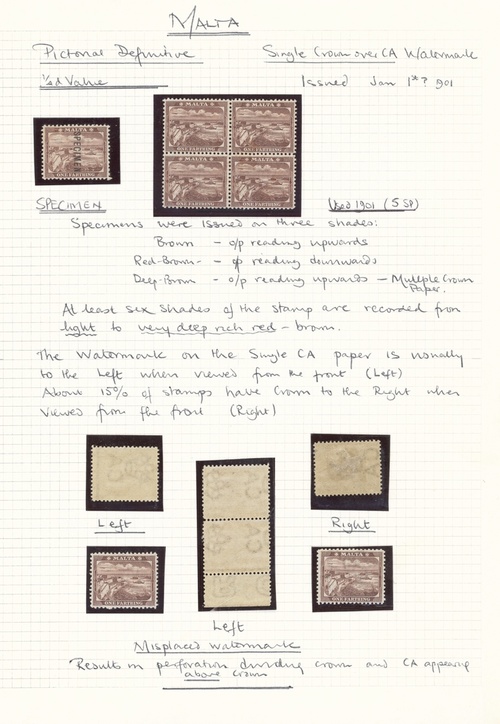 MALTA
Pictorial Definitive Single Crown over CA Watermark
¼d Value Issued Jan 1st? 901
SPECIMEN
MALTA
ONE FARTHING
MALTA MALTA
ONE FARTHING ONE FARTHING
MALTA MALTA
ONE FARTHING ONE FARTHING
SPECIMEN Used 1901 (5 SP)
Specimens were issued on three shades:
Brown - o/p reading upwards
Red-Brown - o/p reading downwards
Deep-Brown - o/p reading upwards - Multiple Crown
Paper.
At least six shades of the stamp are recorded from
light to very deep rich red-brown.
The Watermark on the Single CA paper is usually
to the Left when viewed from the front (Left)
About 15% of stamps have Crown to the Right when
viewed from the front (Right)
Left Right
MALTA
ONE FARTHING
MALTA
ONE FARTHING
Left
Misplaced watermark
Results in perforation dividing crown and CA appearing
above crown